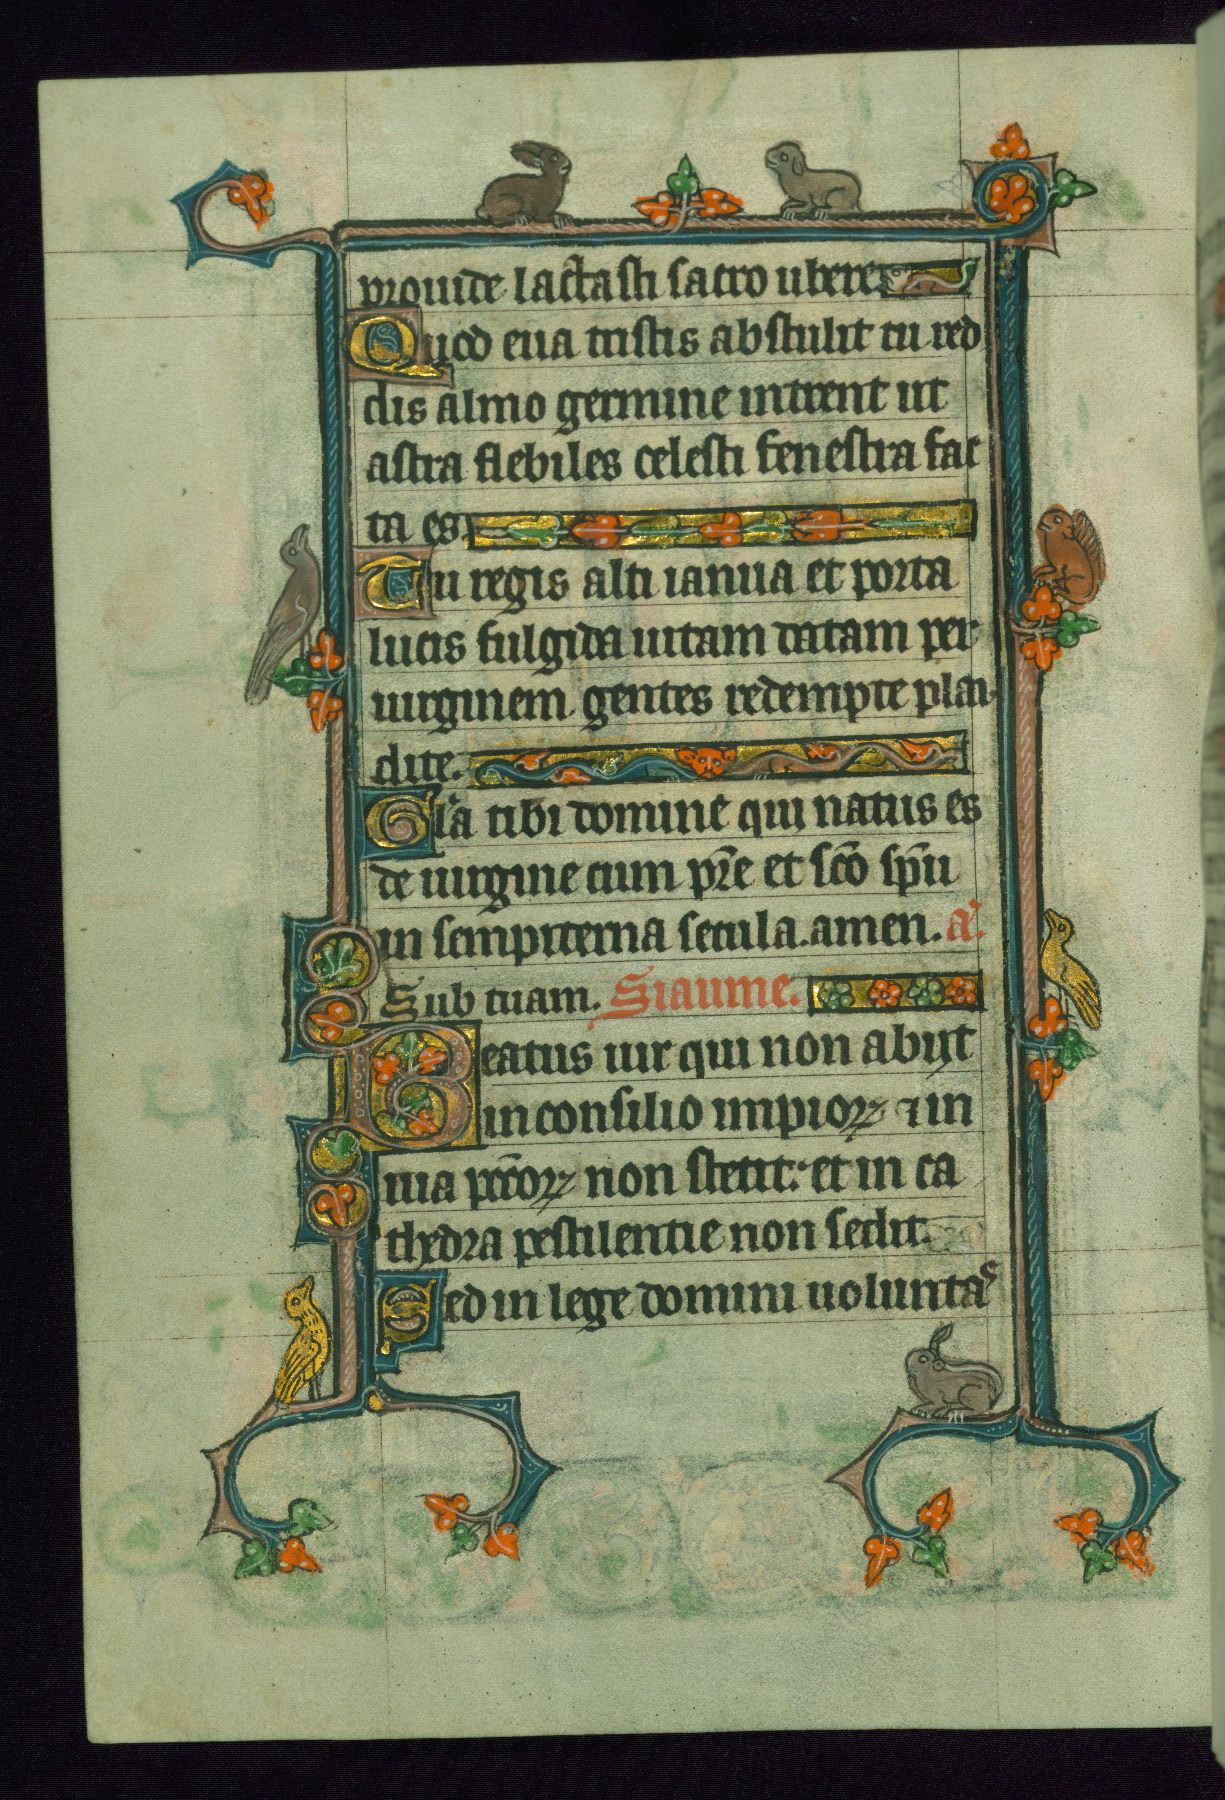 prouide lactasti sacro ubere
Quod eua tristis abstulit tu red
dis almo germine intrent ut
astra flebiles celesti fenestra fac
ta es.
Tu regis alti ianua et porta
lucis fulgida uitam datam per
uirginem gentes redempte plau
dite.
Gl'a tibi domine qui natus es
de uirgine cum pr̄e et sc̄o sp̄u
in sempiterna secula. amen. a.
Sub tuam. Siaume.
Beatus uir qui non abijt
in consilio impioꝝ ⁊ in
uia pccōꝝ non stetit: et in ca
thedra pestilentie non sedit.
Sed in lege domini uoluntas